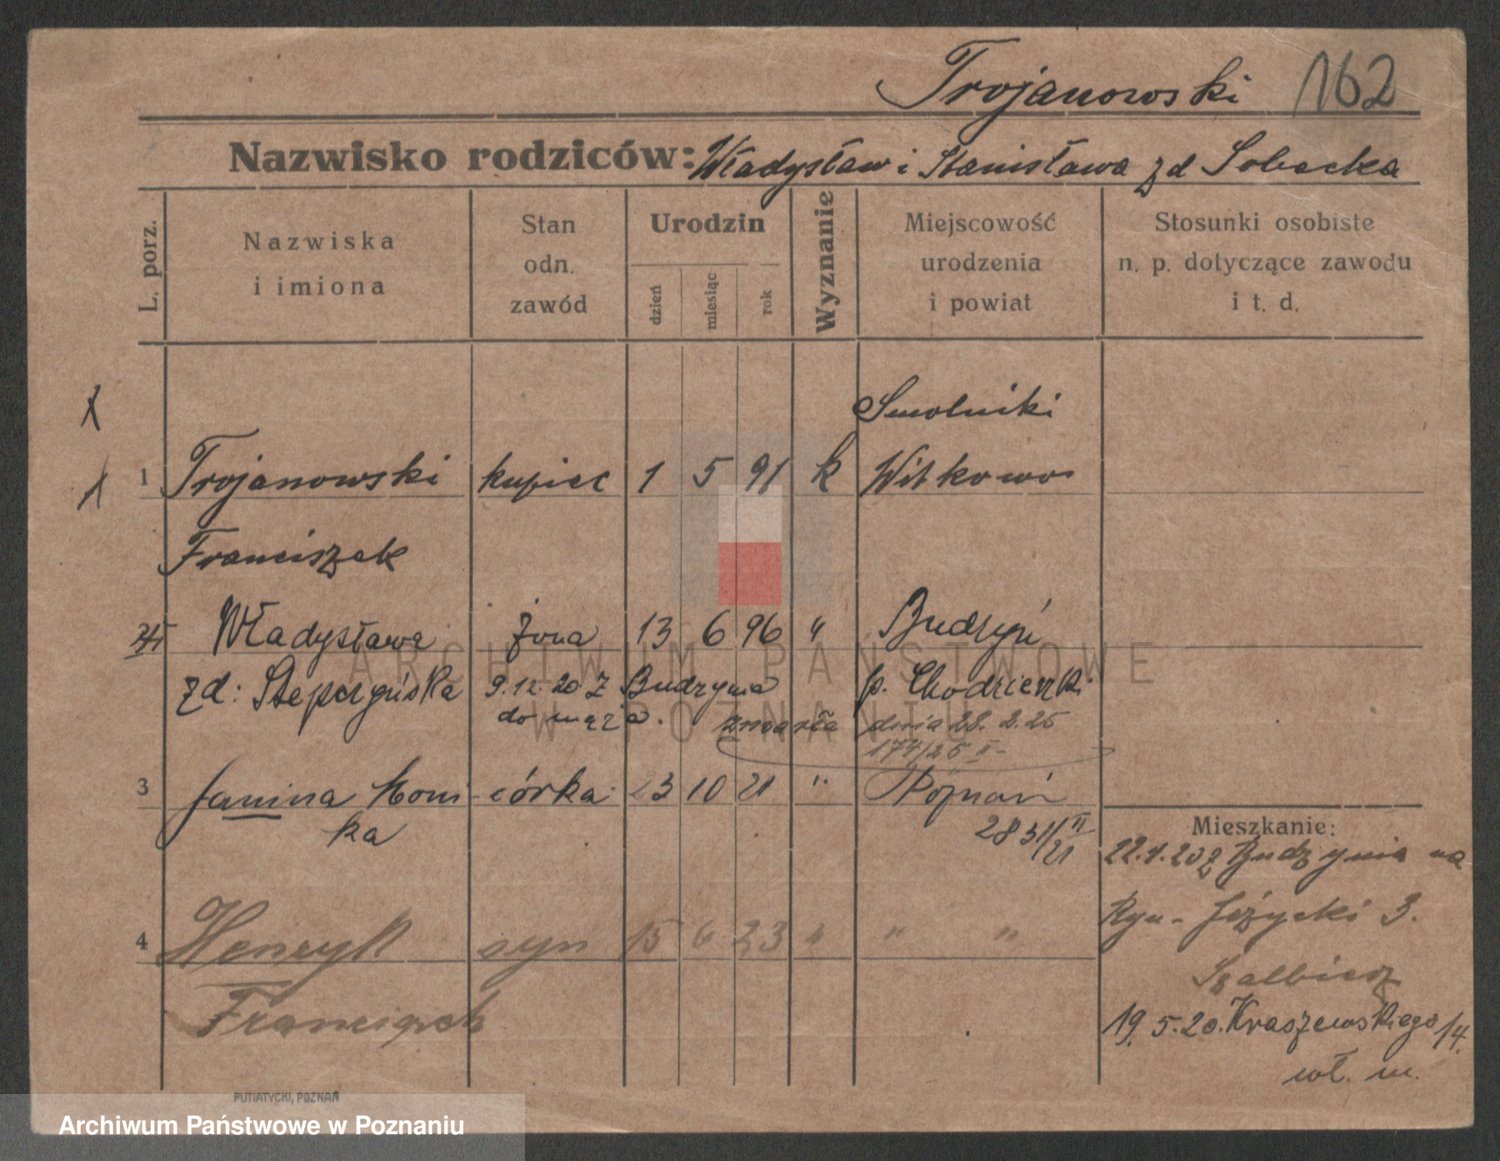 Trojanowski 162
Nazwisko rodziców: Władysław i Stanisława zd Sobecka
L. porz.
Nazwiska
i imiona
Stan
odn.
zawód
Urodzin
dzień
miesiąc
rok
Wyznanie
Miejscowość
urodzenia
i powiat
Stosunki osobiste
n. p. dotyczące zawodu
i t. d.
x
Smolniki
1 Trojanowski kupiec 1 5 91 k Witkowo
Franciszek
Władysława żona 13 6 96 " Budzyń
zd: Stepczyńska 9.12.20 z Budzynia p. Chodzież
do męża. zmarła dnia 28.2.25
174/25 II-
3 Janina Moni- córka 23 10 21 " Poznań
ka 2831/II 21
Mieszkanie:
22.1.20 z Budzynia na
Ryn- Jeżycki 3.
4 Henryk syn 15 6 23 " " "
Franciszek
19.5.20. Kraszewskiego 14.
wł. m.
PUTIATYCKI, POZNAŃ
ARCHIWUM PAŃSTWOWE
W POZNANIU
Archiwum Państwowe w Poznaniu